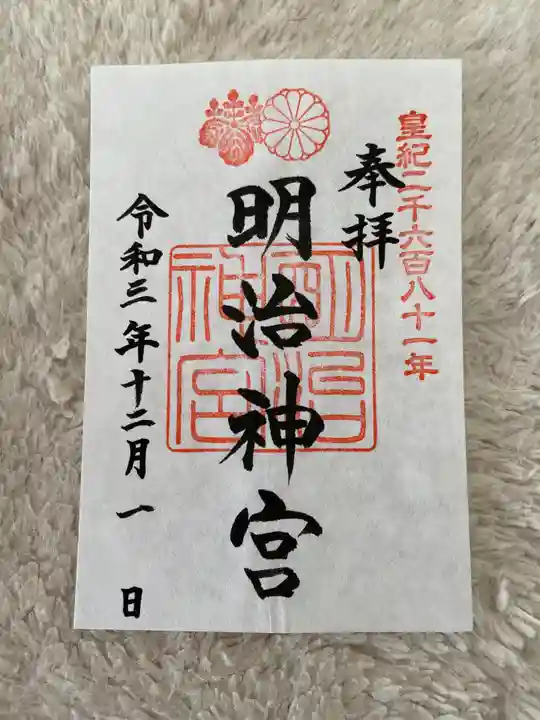 皇紀二千六百八十一年
奉拝
明治神宮
明治神宮
令和三年十二月一日